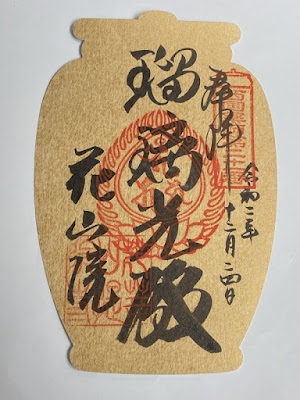 奉拝
令和二年
十二月二四日
瑠璃光殿
花山院